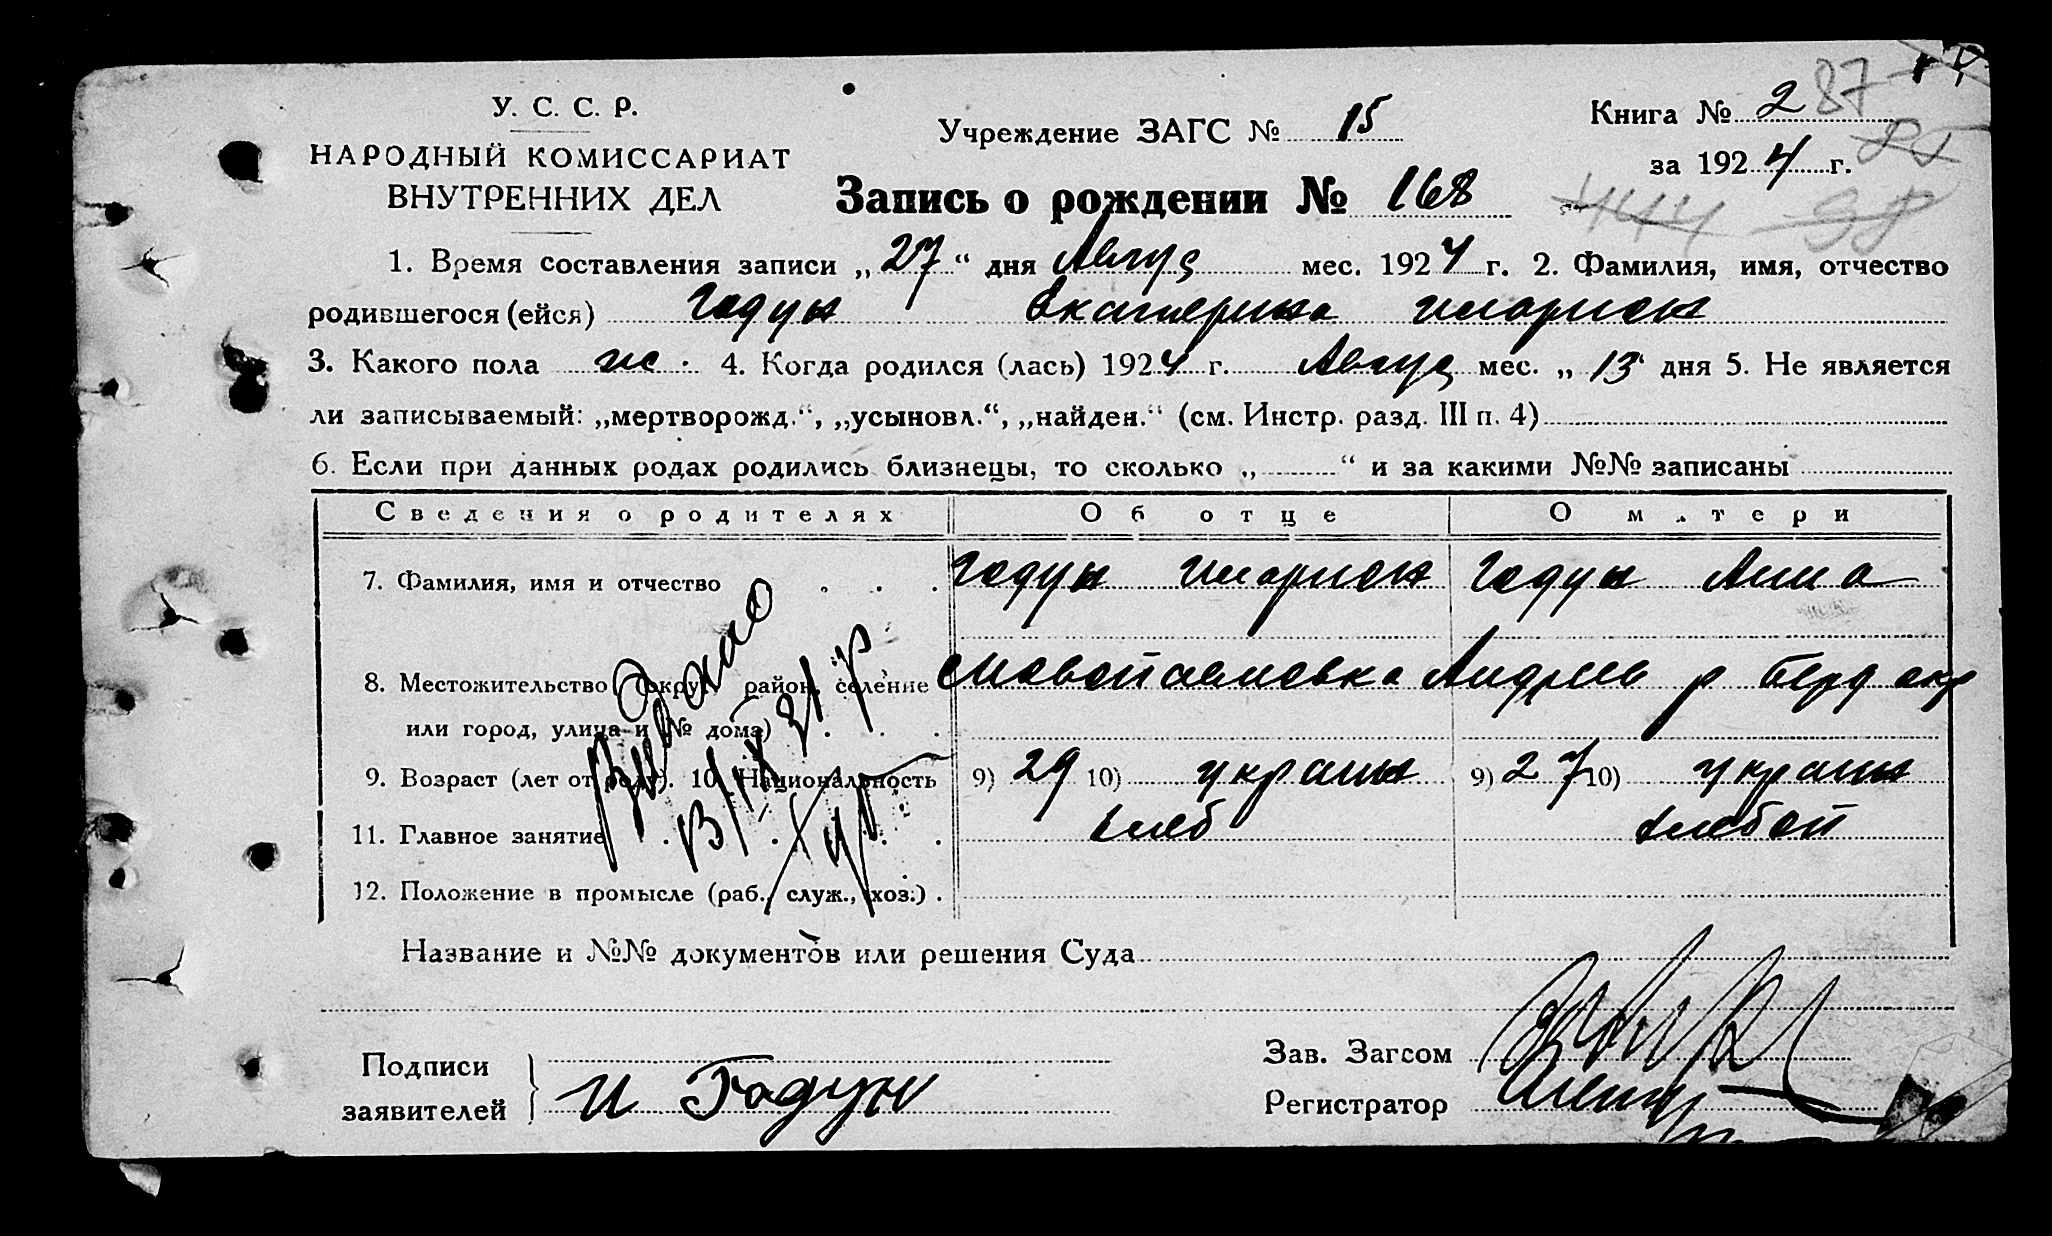 У. С. С. Р.
НАРОДНЫЙ КОМИССАРИАТ
ВНУТРЕННИХ ДЕЛ
Учреждение ЗАГС № 15
Книга № 2 87
за 1924 г. 85
Запись о рождении № 168
444 98
1. Время составления записи „ 27 “ дня Авгус мес. 1924 г. 2. Фамилия, имя, отчество
родившегося (ейся) Годун Екатерина Иларион
3. Какого пола ж. 4. Когда родился (лась) 1924 г. Авгус мес. „ 13 дня 5. Не является
ли записываемый: „мертворожд.“, „усыновл.“, „найден.“ (см. Инстр. разд. III п. 4)
6. Если при данных родах родились близнецы, то сколько „ “ и за какими №№ записаны
Сведения о родителях Об отце О матери
7. Фамилия, имя и отчество . . . Годун Иларион Годун Анна
8. Местожительство (округ, район, селение с Новопавловка Андреев р Берд окр
или город, улица и № дома) . . .
9. Возраст (лет от роду). 10. Национальность 9) 29 10) украин 9) 27 10) украин
11. Главное занятие . . . хлеб хлебоп
12. Положение в промысле (раб., служ., хоз.) .
Выдано
Название и №№ документов или решения Суда
Подписи
заявителей И Годун
Зав. Загсом
Регистратор